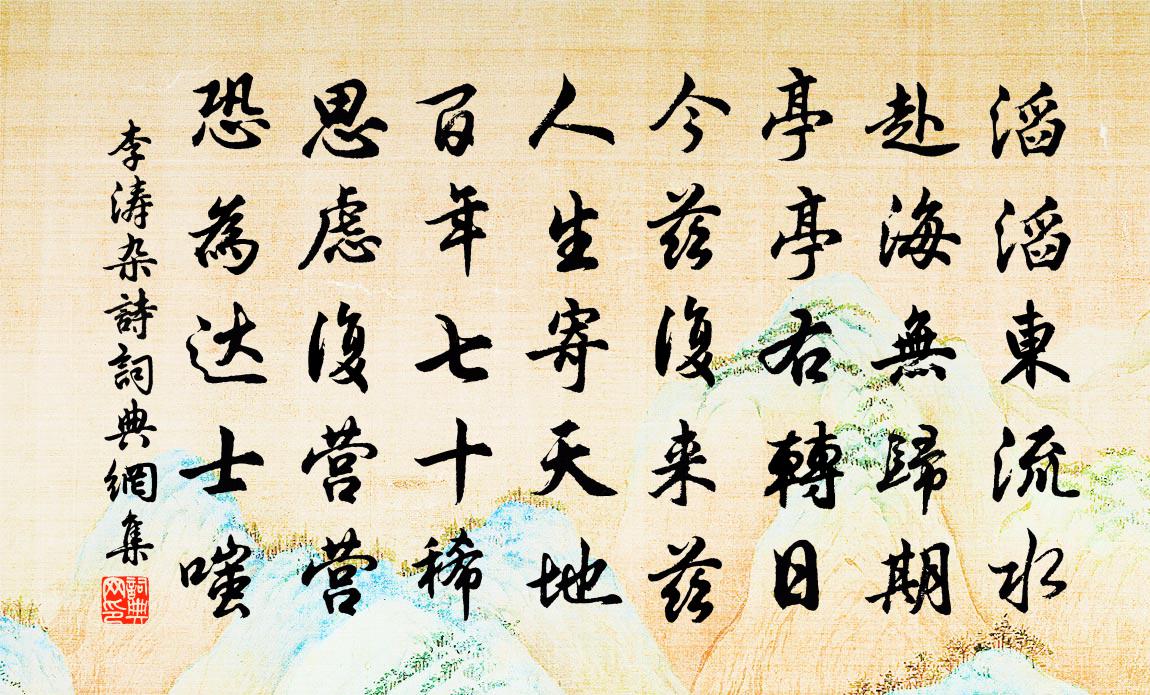 滔滔東流水
赴海無歸期
亭亭右轉日
今茲復来茲
人生寄天地
百年七十稀
思慮復营营
恐為达士嗤
李涛杂詩詞典網集
詞典网印